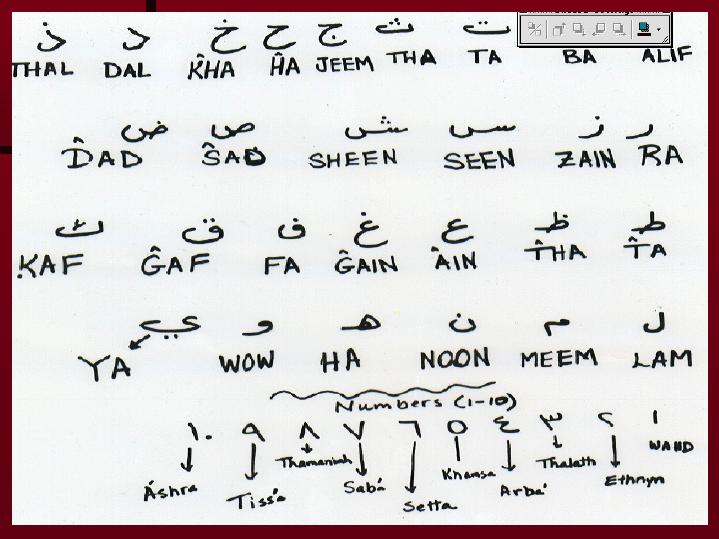 ت ث ج ح خ د ذ
THAL DAL K̂HA ĤA JEEM THA TA BA ALIF
ر ز س ش ص ض
D̂AD ŜAD SHEEN SEEN ZAIN RA
ط ظ ع غ ف ق ك
KAF ĜAF FA ĜAIN ÂIN T̂HA T̂A
ل م ن هـ و ي
YA WOW HA NOON MEEM LAM
Numbers (1-10)
١ ٢ ٣ ٤ ٥ ٦ ٧ ٨ ٩ ١٠
Áshra Tissá Thamaniah Sabá Setta Khamsa Arbá Thalath Ethnyn WAHD